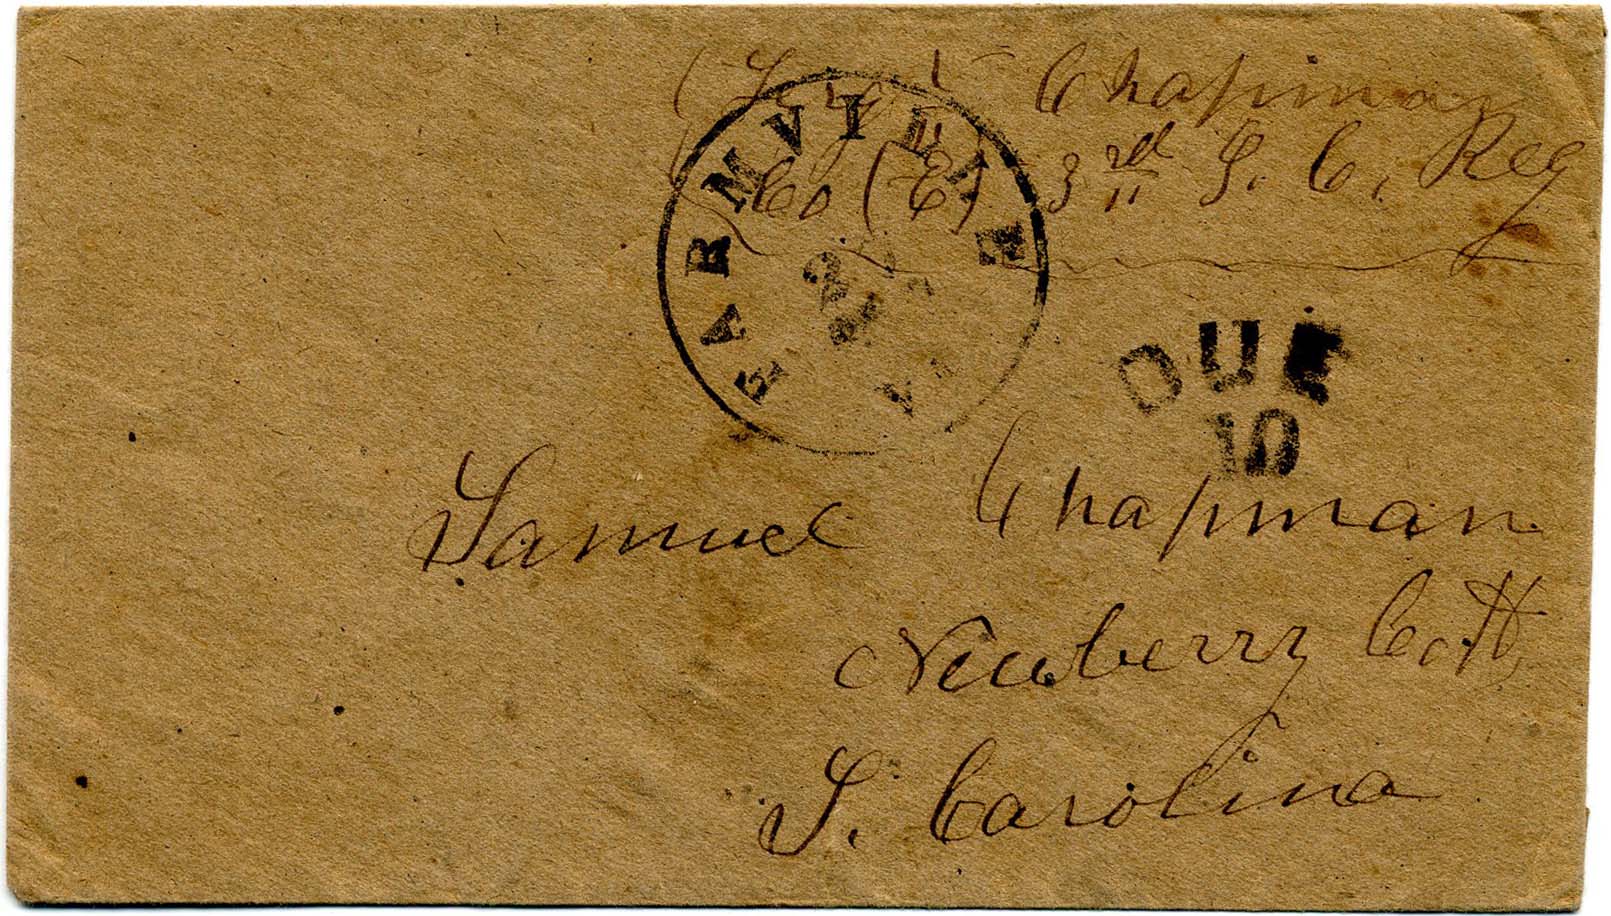 Serg't Chapman
Co (E) 3rd S. C. Reg
FARMVILLE
VA
DUE
10
Samuel Chapman
Newberry C. H.
S. Carolina